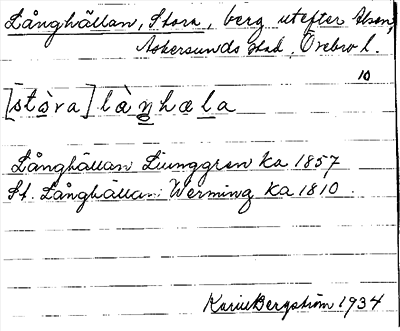 Långhällan, Stora, berg utefter Alsen,
Askersunds stad, Örebro l.
10
[stòra] làŋhæla
Långhällan Ljunggren ka 1857
St. Långhällan: Werming ka 1810.
Karin Bergström 1934